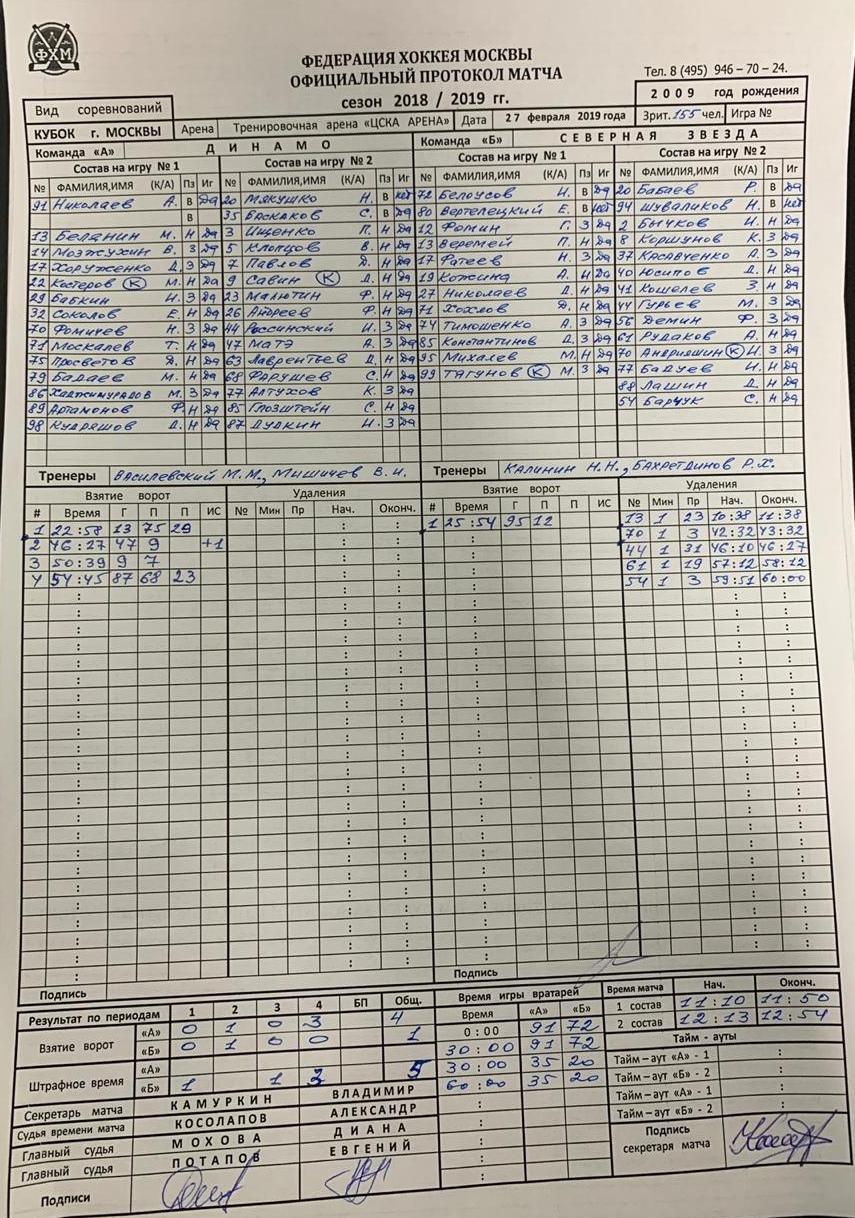 ФХМ
ФЕДЕРАЦИЯ ХОККЕЯ МОСКВЫ
ОФИЦИАЛЬНЫЙ ПРОТОКОЛ МАТЧА
Тел. 8 (495) 946 – 70 – 24.
сезон 2018 / 2019 гг.
2009 год рождения
Вид соревнований
КУБОК г. МОСКВЫ Арена Тренировочная арена «ЦСКА АРЕНА» Дата 27 февраля 2019 года Зрит. 155 чел. Игра №
Команда «А» ДИНАМО Команда «Б» СЕВЕРНАЯ ЗВЕЗДА
Состав на игру № 1 Состав на игру № 2 Состав на игру № 1 Состав на игру № 2
№ ФАМИЛИЯ,ИМЯ (К/А) Пз Иг № ФАМИЛИЯ,ИМЯ (К/А) Пз Иг № ФАМИЛИЯ,ИМЯ (К/А) Пз Иг № ФАМИЛИЯ,ИМЯ (К/А) Пз Иг
91 Николаев А. В Да 20 Мякушко Н. В нет 72 Белоусов И. В Да 20 Бабаев Р. В Да
В 35 Баскаков С. В Да 80 Вертелецкий Е. В нет 94 Шуваликов Н. В нет
13 Беланин М. Н Да 3 Ищенко П. Н Да 12 Фомин Г. З Да 2 Бычков И. Н Да
14 Мозжухин В. З Да 5 Клопцов В. Н Да 13 Веремей П. Н Да 8 Коршунов К. З Да
17 Хоруженко Д. З Да 7 Павлов Д. Н Да 17 Фатеев Н. З Да 37 Касавченко А. З Да
22 Костеров (К) М. Н Да 9 Савин (К) Д. Н Да 19 Кожина А. Н Да 40 Юсипов Д. Н Да
29 Бабкин И. З Да 23 Малютин Ф. Н Да 27 Николаев Д. Н Да 41 Кошелев З. Н Да
32 Соколов Е. Н Да 26 Андреев Ф. Н Да 71 Хохлов Д. Н Да 44 Гурьев М. З Да
70 Фомичев Н. З Да 44 Россинский И. З Да 74 Тимошенко А. З Да 56 Демин Ф. З Да
71 Москалев Т. Н Да 47 Матэ А. З Да 85 Константинов Д. З Да 61 Рудаков А. Н Да
75 Просветов Д. Н Да 63 Лаврентьев Д. Н Да 95 Михалев М. Н Да 70 Андрияшин (К) И. З Да
79 Бадаев М. Н Да 68 Фарушев С. Н Да 99 Тягунов (К) М. З Да 77 Бадуев И. Н Да
86 Хаджимурадов М. З Да 77 Алтухов К. З Да 88 Лашин Д. Н Да
89 Артамонов Ф. Н Да 85 Глозштейн С. Н Да 54 Барчук С. Н Да
98 Кудряшов Д. Н Да 87 Дудкин И. З Да
Тренеры Василевский М.М., Мишичев В.И. Тренеры Калинин Н.Н., Бахретдинов Р.Х.
Взятие ворот Удаления Взятие ворот Удаления
# Время Г П П ИС № Мин Пр Нач. Оконч. # Время Г П П ИС № Мин Пр Нач. Оконч.
1 22:58 13 75 29 1 25:54 95 12 13 1 23 10:38 11:38
2 46:27 47 9 +1 70 1 3 42:32 43:32
3 50:39 9 7 44 1 31 46:10 46:27
4 54:45 87 68 23 61 1 19 57:12 58:12
54 1 3 59:51 60:00
Подпись Подпись
Результат по периодам 1 2 3 4 БП Общ. Время игры вратарей Время матча Нач. Оконч.
Взятие ворот «А» 0 1 0 3 4 Время «А» «Б» 1 состав 11:10 11:50
«Б» 0 1 0 0 1 0:00 91 72 2 состав 12:13 12:54
30:00 91 72 Тайм - ауты
Штрафное время «А» 30:00 35 20 Тайм–аут «А» - 1 :
«Б» 1 1 3 5 60:00 35 20 Тайм–аут «Б» - 2 :
Секретарь матча КАМУРКИН ВЛАДИМИР Тайм–аут «А» - 1 :
Судья времени матча КОСОЛАПОВ АЛЕКСАНДР Тайм–аут «Б» - 2 :
Главный судья МОХОВА ДИАНА Подпись секретаря матча
Главный судья ПОТАПОВ ЕВГЕНИЙ
Подписи